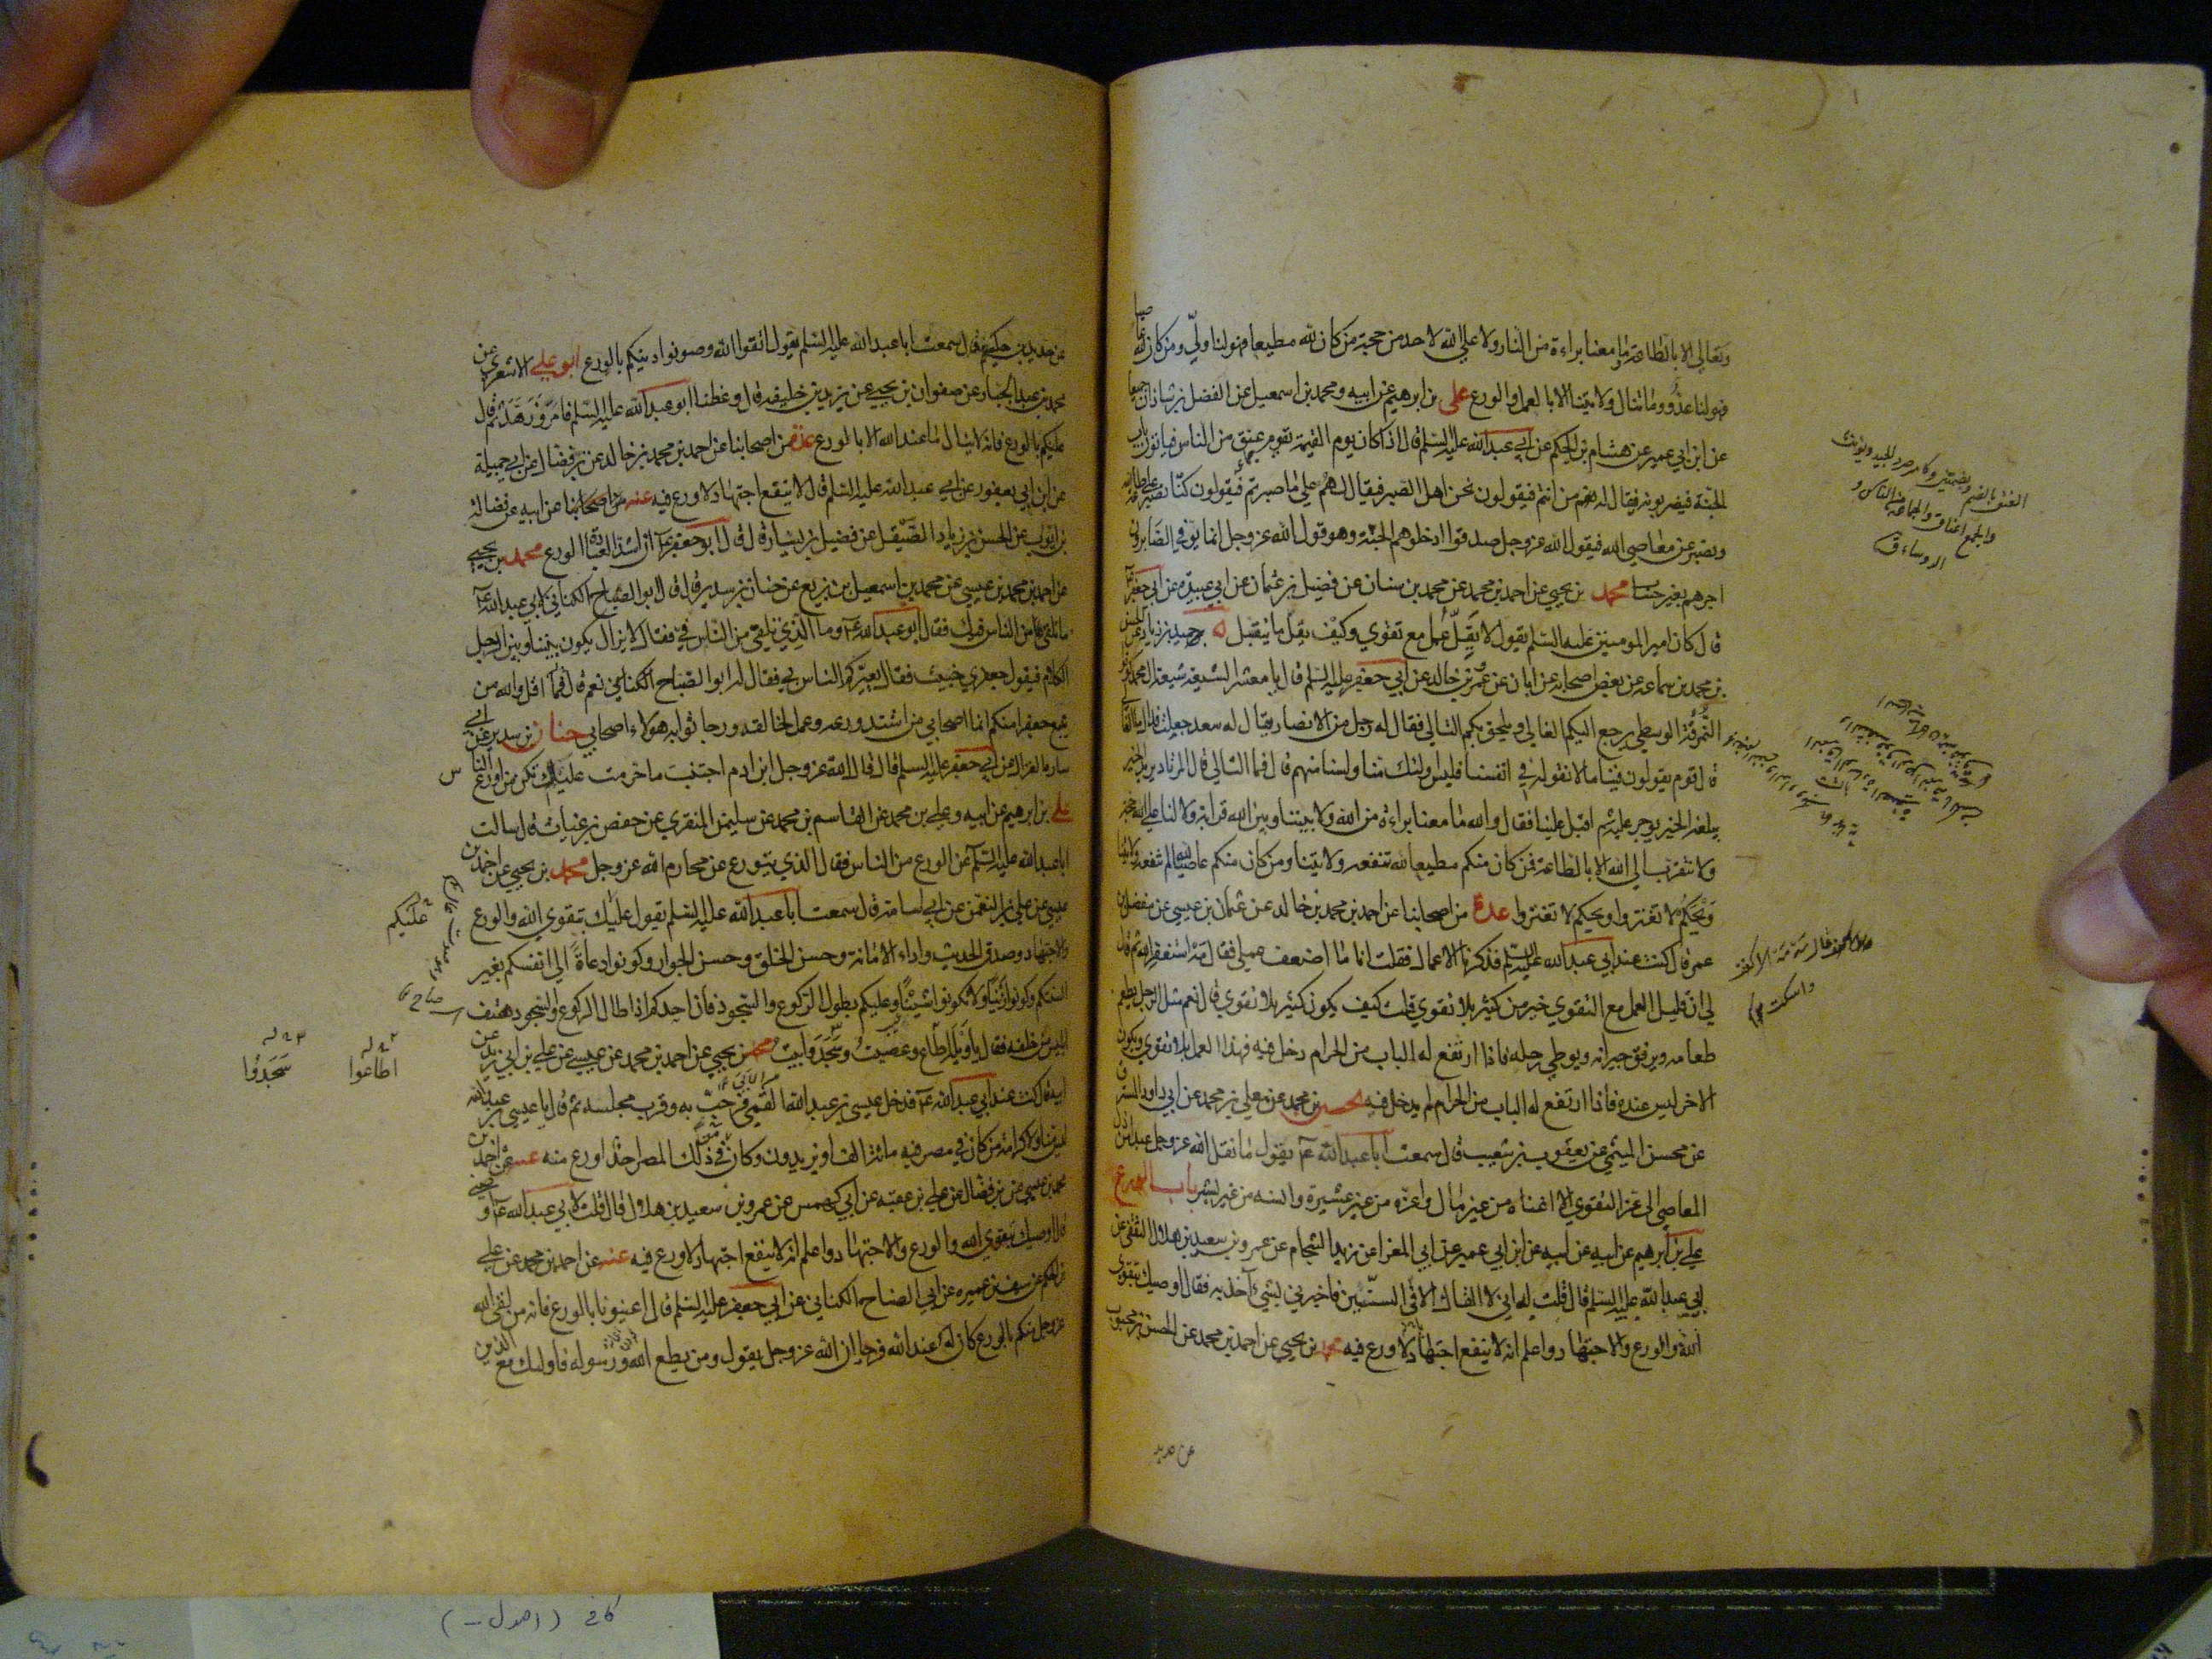 وتعالى الا بالطاعة وما معنا براءة من النار ولا على الله لاحد من حجة من كان لله مطيعا فهو لنا ولي ومن كان لله عاصيا
فهو لنا عدو وما تنال ولايتنا الا بالعمل والورع علي بن ابرهيم عن ابيه ومحمد بن اسمعيل عن الفضل بن شاذان جميعا
عن ابن ابي عمير عن هشام بن الحكم عن ابي عبد الله عليه السلم قال اذا كان يوم القيمة يقوم عنق من الناس فياتون باب
الجنة فيضربونه فيقال لهم من انتم فيقولون نحن اهل الصبر فيقال لهم على ما صبرتم فيقولون كنا نصبر على طاعة الله
ونصبر عن معاصي الله فيقول الله عز وجل صدقوا ادخلوهم الجنة وهو قول الله عز وجل انما يوفى الصابرون
اجرهم بغير حساب محمد بن يحيى عن احمد بن محمد عن محمد بن سنان عن فضيل بن عثمان عن ابي عبيدة عن ابي جعفر
قال كان امير المومنين عليه السلم يقول لا يقل عمل مع تقوى وكيف يقل ما يتقبل حميد بن زياد عن الحسن
بن محمد بن سماعه عن بعض اصحابه عن ابان عن عمرو بن خالد عن ابي جعفر عليه السلم قال يا معشر الشيعة شيعة ال محمد كونوا
النمرقة الوسطى يرجع اليكم الغالي ويلحق بكم التالي فقال له رجل من الانصار يقال له سعد جعلت فداك ما الغالي
قال قوم يقولون فينا ما لا نقوله في انفسنا فليس اولئك منا ولسنا منهم قال فما التالي قال المرتاد يريد الخير
يبلغه الخير يوجر عليه ثم اقبل علينا فقال والله ما معنا براءة من الله ولا بيننا وبين الله قرابة ولا لنا على الله حجة
ولا نتقرب الى الله الا بالطاعة فمن كان منكم مطيعا لله تنفعه ولايتنا ومن كان منكم عاصيا لله لم تنفعه ولايتنا
ويحكم لا تغتروا ويحكم لا تغتروا عدة من اصحابنا عن احمد بن محمد بن خالد عن عثمان بن عيسى عن مفضل بن
عمر قال كنت عند ابي عبد الله عليه السلم فذكرنا الاعمال فقلت انا ما اضعف عملي فقال مه استغفر الله ثم قال
لي ان قليل العمل مع التقوى خير من كثير بلا تقوى قلت كيف يكون كثير بلا تقوى قال نعم مثل الرجل يطعم
طعامه ويرفق جيرانه ويوطي رحله فاذا ارتفع له الباب من الحرام دخل فيه فهذا العمل بلا تقوى ويكون
الاخر ليس عنده فاذا ارتفع له الباب من الحرام لم يدخل فيه الحسين بن محمد عن معلى بن محمد عن ابي داود المسترق
عن محسن الميثمي عن يعقوب بن شعيب قال سمعت ابا عبد الله ع يقول ما نقل الله عز وجل عبدا من ذل
المعاصي الى عز التقوى الا اغناه من غير مال واعزه من غير عشيرة وانسه من غير بشر باب الورع
علي بن ابرهيم عن ابيه عن ابن ابي عمير عن ابي المغرا عن زيد الشحام عن عمرو بن سعيد بن هلال الثقفي عن
ابي عبد الله عليه السلم قال قلت له اني لا القاك الا في السنين فاخبرني بشيء آخذ به فقال اوصيك بتقوى
الله والورع والاجتهاد واعلم انه لا ينفع اجتهاد لا ورع فيه محمد بن يحيى عن احمد بن محمد عن الحسن بن محبوب
عن حديد
العنق بالضم وبضمتين وكامير وصرد الجيد ويؤنث
والجمع اعناق والجماعة من الناس و
الروساء ق
واسكت
عن حديد بن حكيم قال سمعت ابا عبد الله عليه السلم يقول اتقوا الله وصونوا دينكم بالورع ابو علي الاشعري عن
محمد بن عبد الجبار عن صفوان بن يحيى عن يزيد بن خليفه قال وعظنا ابو عبد الله عليه السلم فامر وزهد ثم قال
عليكم بالورع فانه لا ينال ما عند الله الا بالورع عدة من اصحابنا عن احمد بن محمد بن خالد عن بن فضال عن ابي جميلة
عن ابن ابي يعفور عن ابي عبد الله عليه السلم قال لا ينفع اجتهاد لا ورع فيه عنه عن ابيه عن فضالة
بن ايوب عن الحسن بن زياد الصيقل عن فضيل بن يسار قال قال ابو جعفر ع ان اشد العبادة الورع محمد بن يحيى
عن احمد بن محمد بن عيسى عن محمد بن اسمعيل بن بزيع عن حنان بن سدير قال قال ابو الصباح الكناني لابي عبد الله ع
ما نلقى من الناس فيك فقال ابو عبد الله ع وما الذي تلقى من الناس في فقال لا يزال يكون بيننا وبين الرجل
الكلام فيقول جعفري خبيث فقال يعيركم الناس بي فقال له ابو الصباح الكناني نعم قال فما اقل والله من
يتبع جعفرا منكم انما اصحابي من اشتد ورعه وعمل لخالقه ورجا ثوابه هولاء اصحابي حنان بن سدير عن ابي
سارة الغزال عن ابي جعفر عليه السلم قال قال الله عز وجل ابن ادم اجتنب ما حرمت عليك تكن من اورع الناس
علي بن ابرهيم عن ابيه وعلي بن محمد عن القاسم بن محمد عن سليمن المنقري عن حفص بن غياث قال سالت
ابا عبد الله عليه السلم عن الورع من الناس فقال الذي يتورع عن محارم الله عز وجل محمد بن يحيى عن احمد بن
عيسى عن علي بن النعمن عن ابي اسامة قال سمعت ابا عبد الله عليه السلم يقول عليك بتقوى الله والورع
والاجتهاد وصدق الحديث واداء الامانة وحسن الخلق وحسن الجوار وكونوا دعاة الى انفسكم بغير
السنتكم وكونوا زينا ولا تكونوا شينا وعليكم بطول الركوع والسجود فان احدكم اذا اطال الركوع والسجود هتف
ابليس من خلفه فقال يا ويله اطاع وعصيت وسجد وابيت محمد بن يحيى عن احمد بن محمد عن عيسى عن علي بن ابي زيد عن
ابيه قال كنت عند ابي عبد الله ع فدخل عيسى بن عبد الله القمي فرحب به وقرب مجلسه ثم قال يا عيسى بن عبد الله
ليس منا ولا كرامة من كان في مصر فيه مائة الف او يزيدون وكان في ذلك المصر احد اورع منه عنه عن احمد بن
محمد بن عيسى عن بن فضال عن علي بن عقبه عن ابي كهمس عن عمرو بن سعيد بن هلال قال قلت لابي عبد الله ع اوصني
قال اوصيك بتقوى الله والورع والاجتهاد واعلم انه لا ينفع اجتهاد لا ورع فيه عنه عن احمد بن محمد عن علي
بن الحكم عن سيف بن عميره عن ابي الصباح الكناني عن ابي جعفر عليه السلم قال اعينونا بالورع فانه من لقي الله
عز وجل منكم بالورع كان له عند الله فرجا ان الله عز وجل يقول ومن يطع الله ورسوله فاولئك مع الذين
عليكم
اطاعوا
سجدوا
كافي (اصول -)